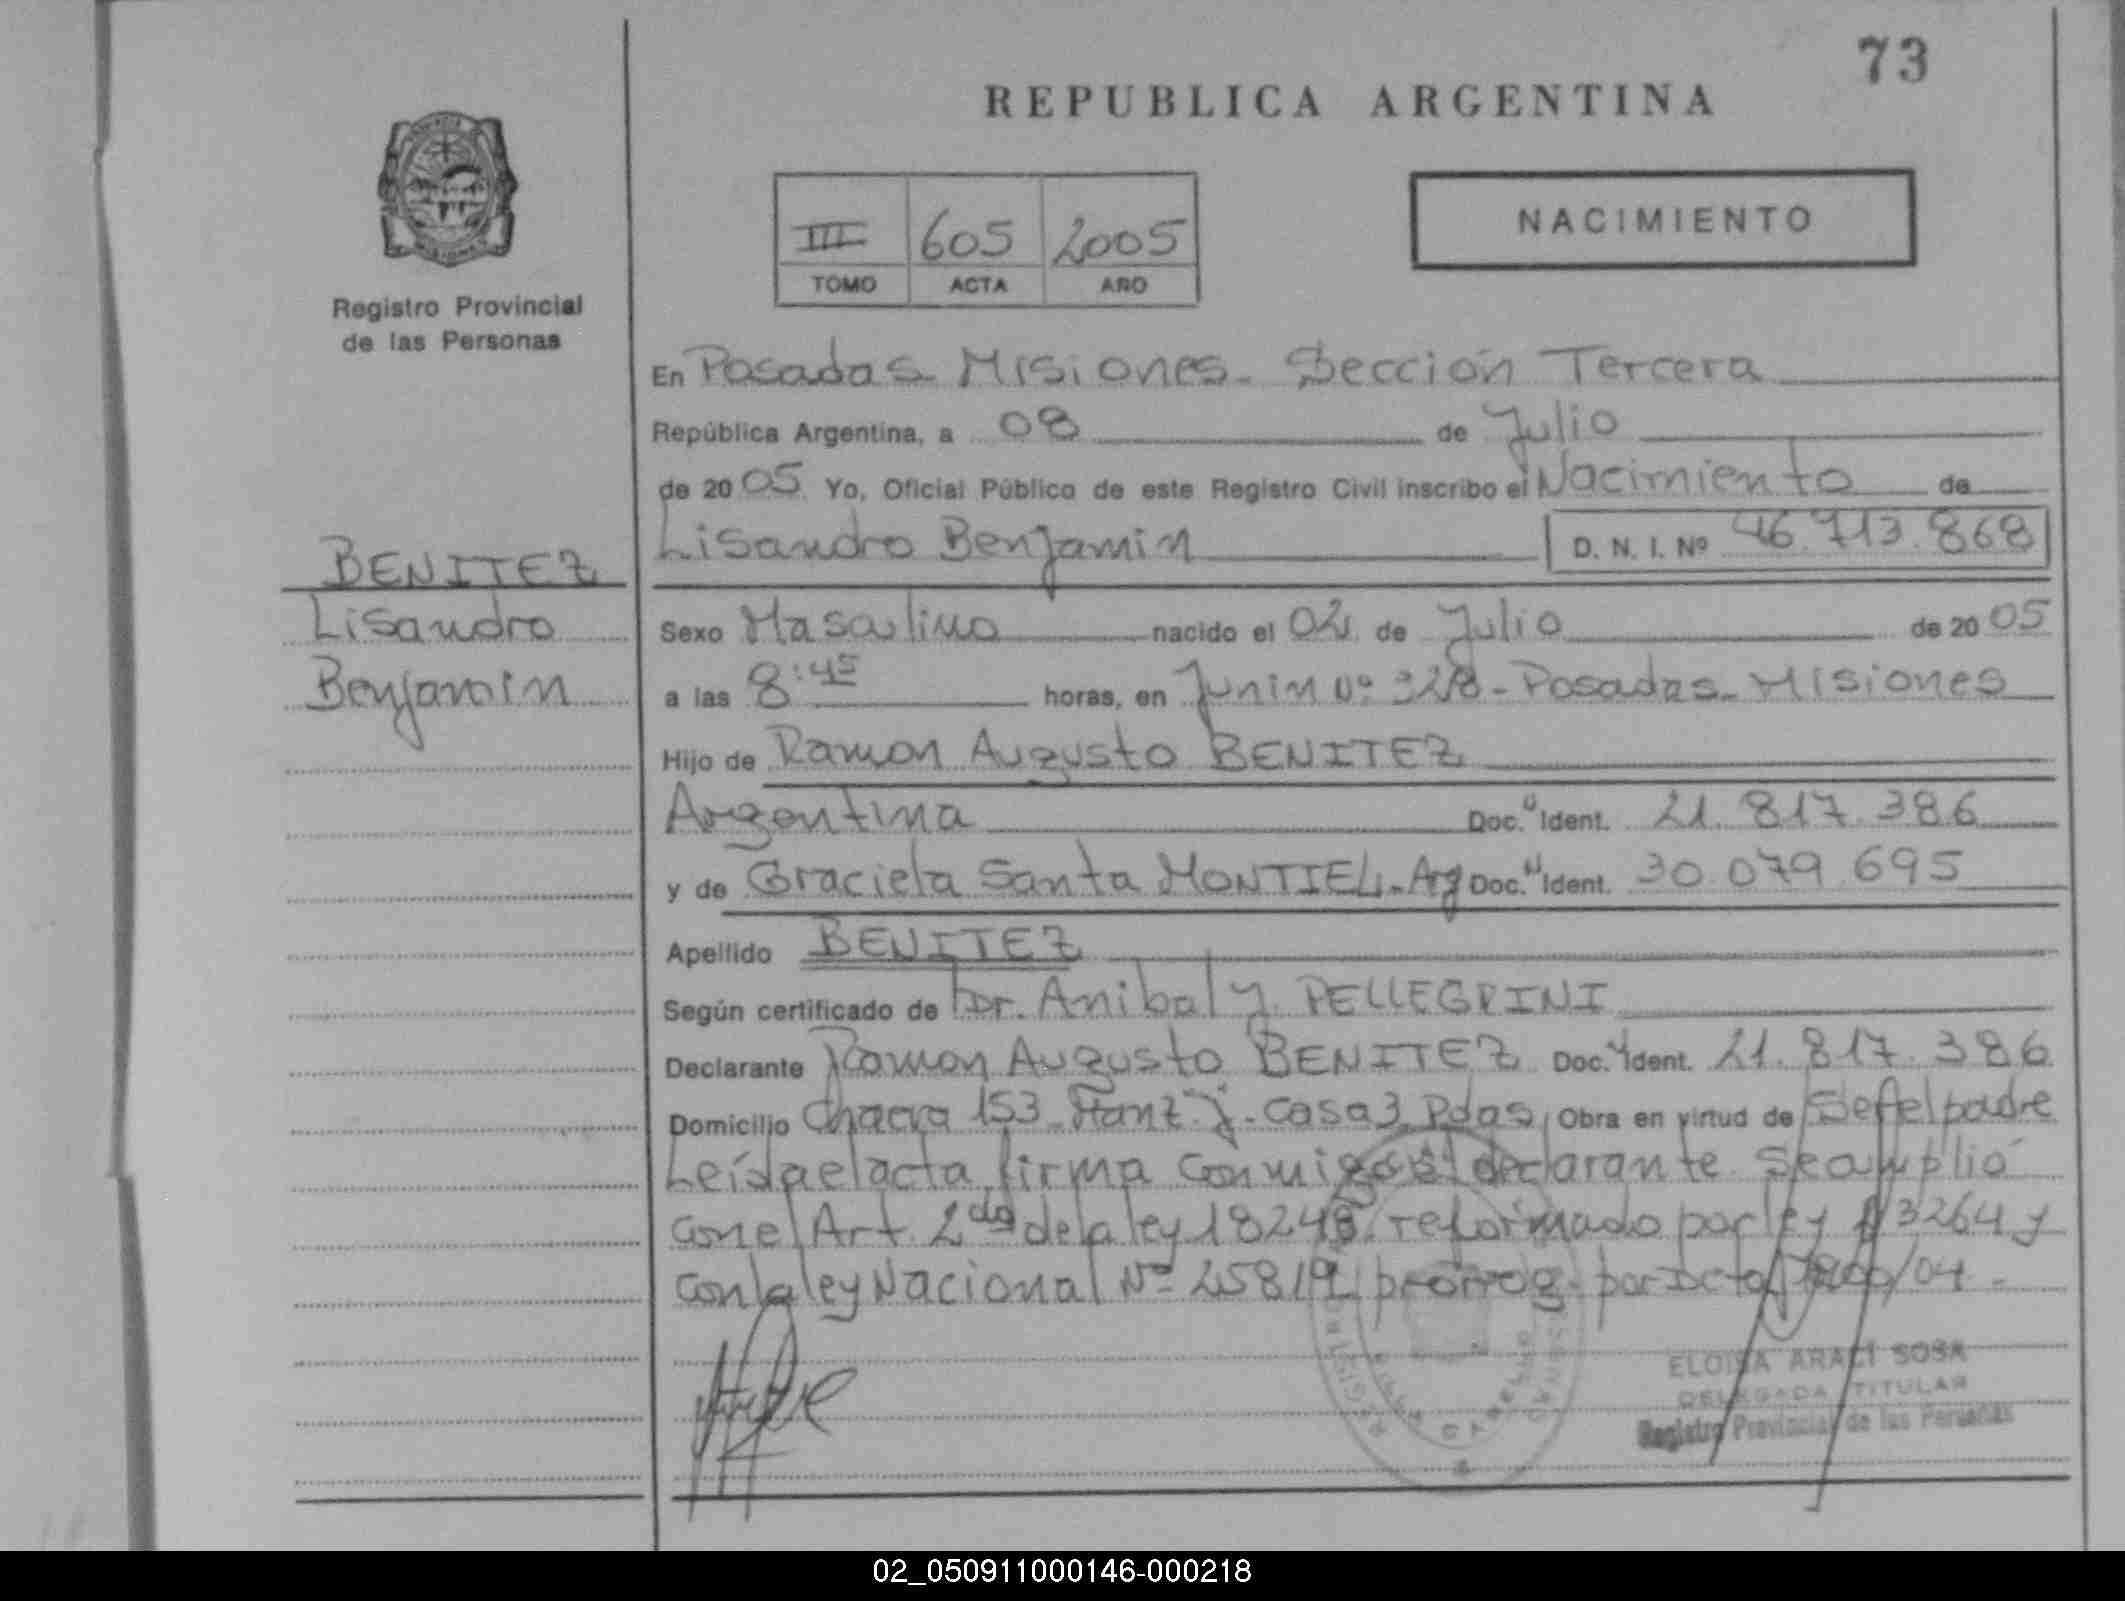 73
REPUBLICA ARGENTINA
NACIMIENTO
III 605 2005
TOMO ACTA AÑO
Registro Provincial
de las Personas
En Posadas - Misiones - Sección Tercera
República Argentina, a 08 de Julio
de 2005 Yo, Oficial Público de este Registro Civil inscribo el Nacimiento de
Lisandro Benjamin D. N. I. Nº 46.713.868
BENITEZ
Lisandro
Benjamin
Sexo Masculino nacido el 02 de Julio de 2005
a las 8:45 horas, en Junin Nº 328 - Posadas - Misiones
Hijo de Ramon Augusto BENITEZ
Argentina Doc. Ident. 21.817.386
y de Graciela Santa MONTIEL - Arg Doc. Ident. 30.079.695
Apellido BENITEZ
Según certificado de Dr. Anibal J. PELLEGRINI
Declarante Ramon Augusto BENITEZ Doc. Ident. 21.817.386
Domicilio Chacra 153 - Manz "J" - Casa 3 Pdas Obra en virtud de Ser el padre
Leída el acta firma conmigo el declarante. Se amplió
con el Art. 2do de la ley 18248 reformado por ley 23264 y
con la ley Nacional Nº 25819 prorrog. por Dcto
ELOISA ARACI SOSA
DELEGADA TITULAR
Registro Provincial de las Personas
02_050911000146-000218